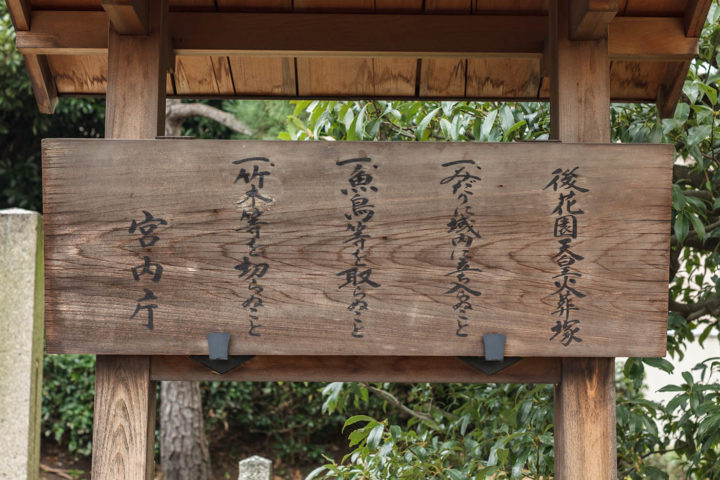 後花園天皇火葬塚
一みだりに域内に立入らぬこと
一魚鳥等を取らぬこと
一竹木等を切らぬこと
宮内庁